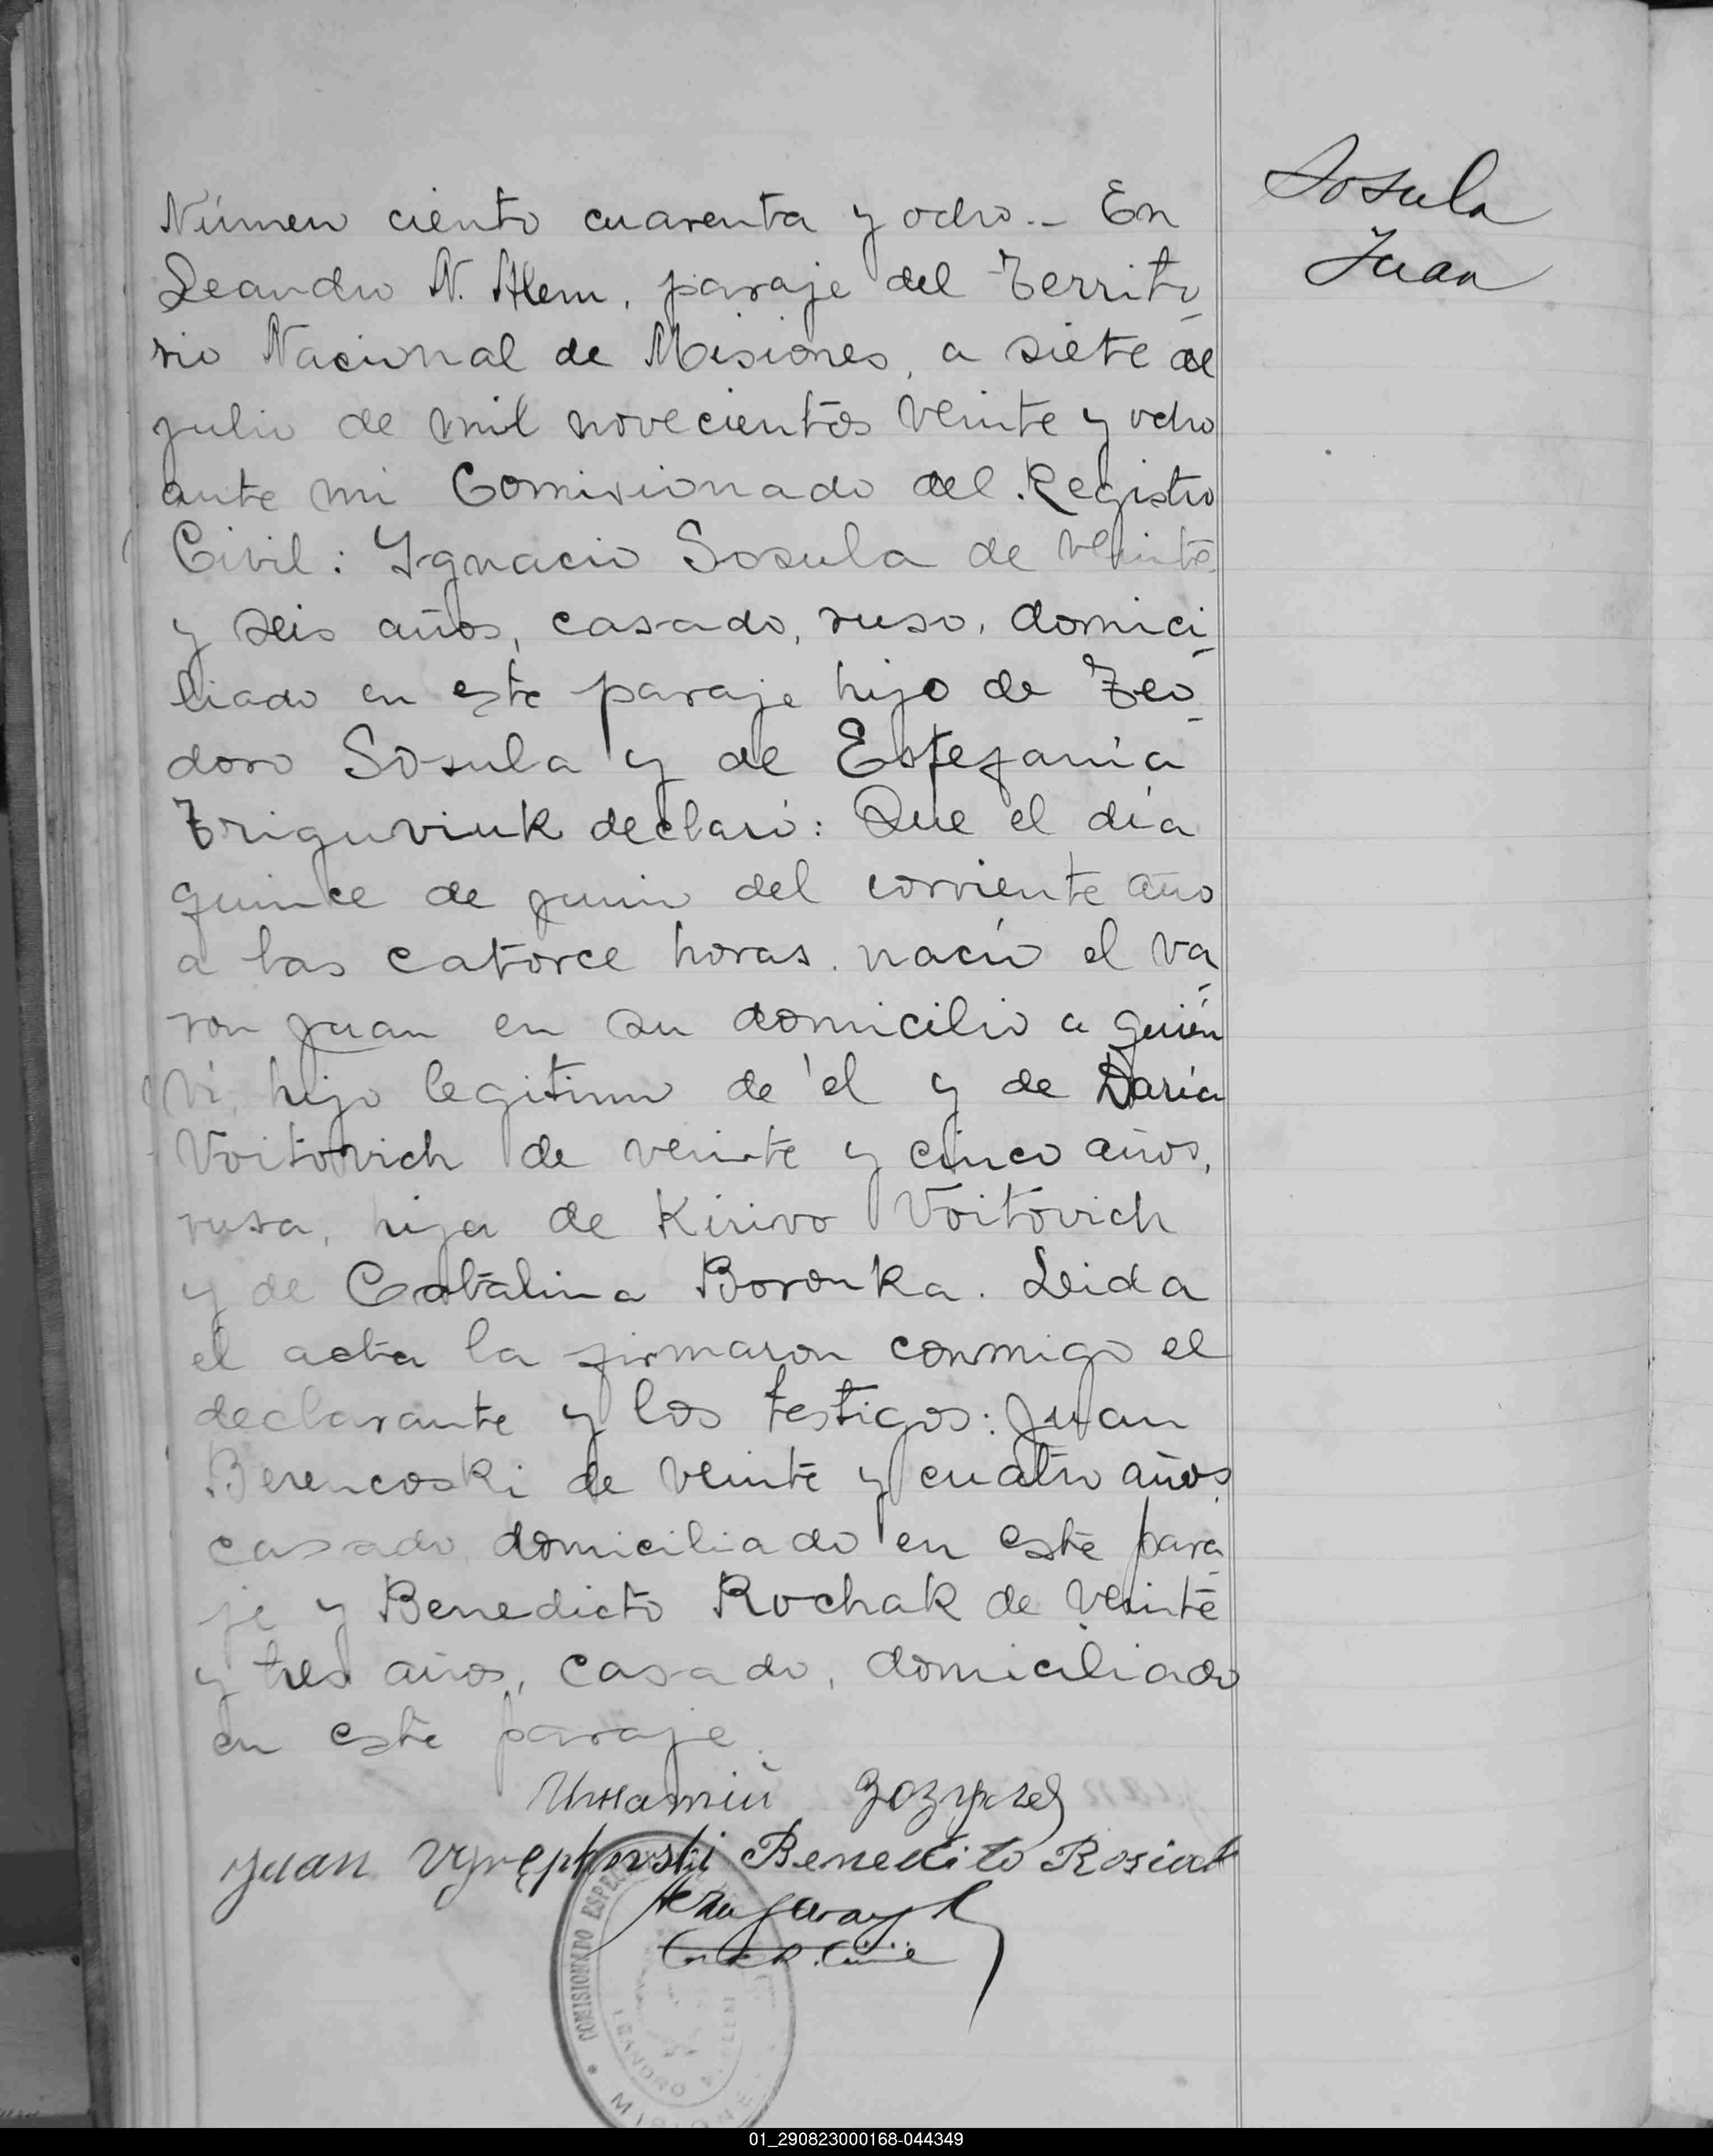 Sosula
Juan
Número ciento cuarenta y ocho.- En
Leandro N. Alem, paraje del Territo
rio Nacional de Misiones, a siete de
julio de mil novecientos veinte y ocho
ante mi Comisionado del Registro
Civil: Ygnacio Sosula de veinte
y seis años, casado, ruso, domici
liado en este paraje hijo de Teo
doro Sosula y de Estefanía
Triguviuk declaró: Que el día
quince de junio del corriente año
a las catorce horas. nació el va
ron Juan en su domicilio a quién
ví, hijo legitimo de él y de Daría
Voitovich de veinte y cinco años,
rusa, hija de Kirivo Voitovich
y de Catalina Boronka. Leida
el acta la firmaron conmigo el
declarante y los testigos: Juan
Berencoski de veinte y cuatro años
casado domiciliado en este para
je y Benedicto Rochak de veinte
y tres años, casado, domiciliado
en este paraje.
Juan Benedito
COMISIONADO ESPE
LEANDRO N. ALEM
MISIONES
01_290823000168-044349